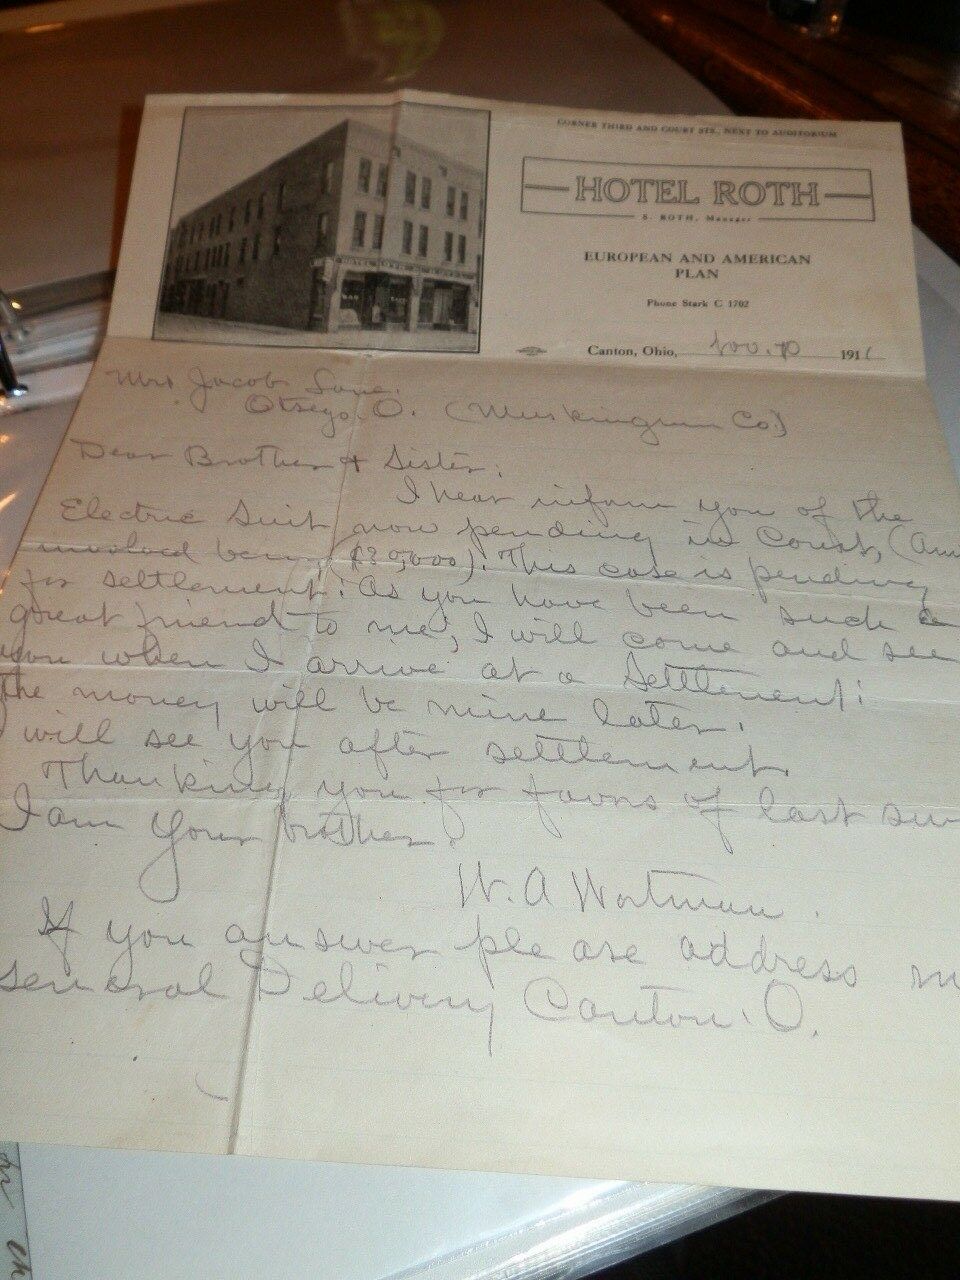 CORNER THIRD AND COURT STS., NEXT TO AUDITORIUM
HOTEL ROTH
S. ROTH, Manager
EUROPEAN AND AMERICAN
PLAN
Phone Stark C 1702
Canton, Ohio, Nov. 191
Mrs Jacob
Otsego. O. (Muskingum Co.)
Dear Brother & Sister:
I hear inform you of the
Electric Suit now pending in Court, (Am
involved being $20,000). This case is pending
for settlement: As you have been such a
great friend to me, I will come and see
you when I arrive at a Settlement:
the money will be mine later.
will see you after settlement.
Thanking you for favors of last su
I am your brother.
W. A Wortman.
If you answer please address m
General Delivery Canton. O.